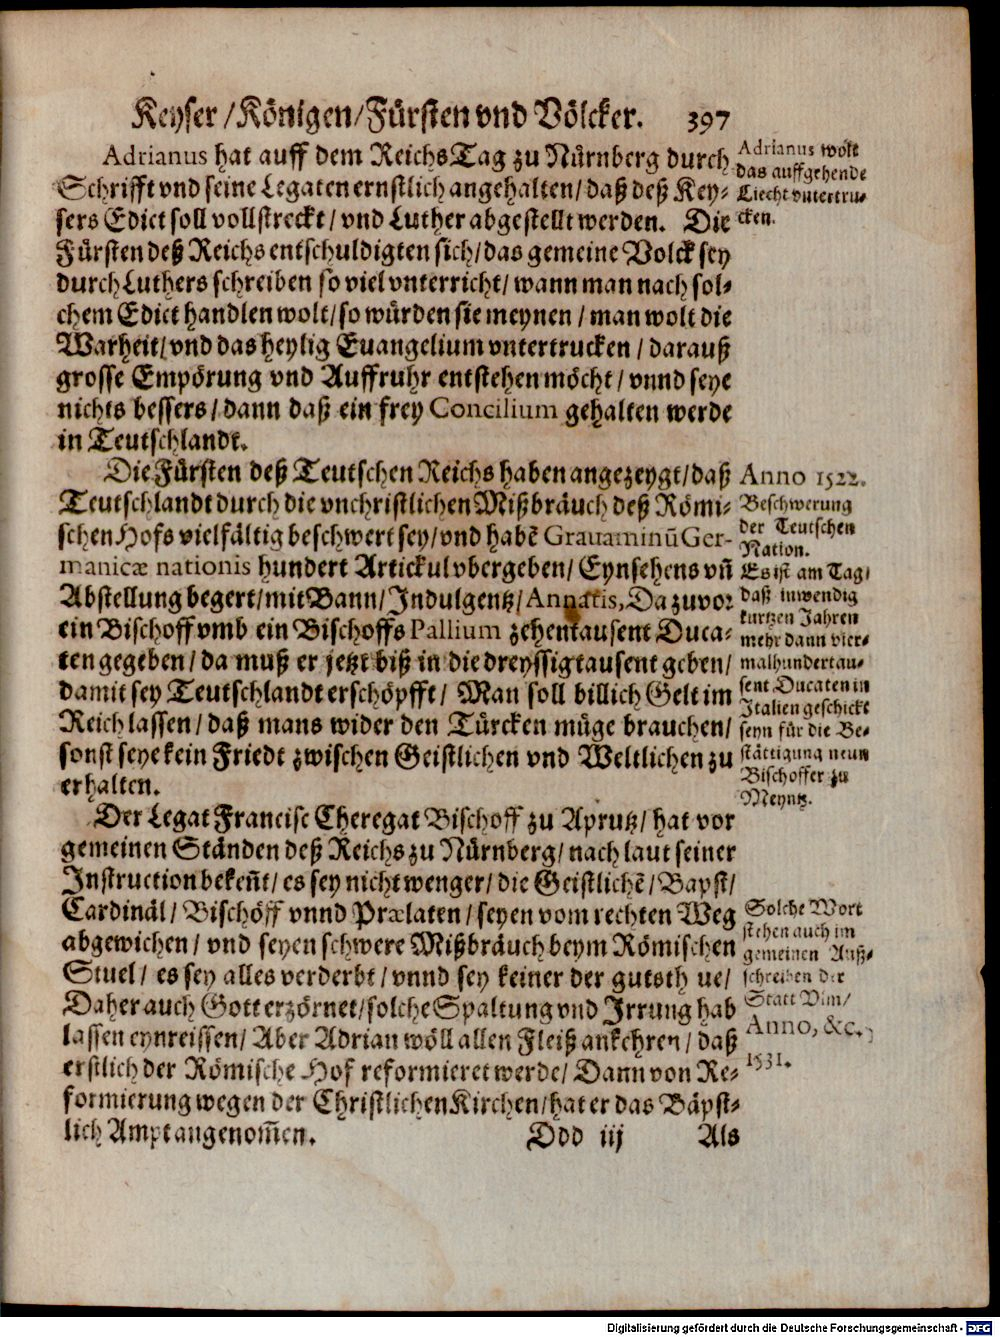 Keyser / Königen / Fürsten vnd Völcker. 397
Adrianus hat auff dem ReichsTag zu Nürnberg durch
Schrifft vnd seine Legaten ernstlich angehalten / daß deß Key-
sers Edict soll vollstreckt / vnd Luther abgestellt werden. Die
Fürsten deß Reichs entschuldigten sich / das gemeine Volck sey
durch Luthers schreiben so viel vnterricht / wann man nach sol-
chem Edict handlen wolt / so würden sie meynen / man wolt die
Warheit / vnd das heylig Euangelium vntertrucken / darauß
grosse Empörung vnd Auffruhr entstehen möcht / vnnd seye
nichts bessers / dann daß ein frey Concilium gehalten werde
in Teutschlandt.
Adrianus wolt
das auffgehende
Liecht vntertru-
cken.
Die Fürsten deß Teutschen Reichs haben angezeygt / daß
Teutschlandt durch die vnchristlichen Mißbräuch deß Römi-
schen Hofs vielfältig beschwert sey / vnd habē Grauaminū Ger-
manicæ nationis hundert Artickul vbergeben / Eynsehens vñ
Abstellung begert / mit Bann / Indulgentz / Annatis, Da zuvor
ein Bischoff vmb ein Bischoffs Pallium zehentausent Duca-
ten gegeben / da muß er jetzt biß in die dreyssigtausent geben /
damit sey Teutschlandt erschöpfft / Man soll billich Gelt im
Reich lassen / daß mans wider den Türcken müge brauchen /
sonst seye kein Friedt zwischen Geistlichen vnd Weltlichen zu
erhalten.
Anno 1522.
Beschwerung
der Teutschen
Nation.
Es ist am Tag /
daß inwendig
kurtzen Jahren
mehr dann vier-
malhundertau-
sent Ducaten in
Italien geschickt
seyn für die Be-
stättigung neun
Bischoffer zu
Meyntz.
Der Legat Francisc Cheregat Bischoff zu Aprutz / hat vor
gemeinen Ständen deß Reichs zu Nürnberg / nach laut seiner
Instruction bekeñt / es sey nicht wenger / die Geistlichē / Bapst /
Cardinäl / Bischöff vnnd Prælaten / seyen vom rechten Weg
abgewichen / vnd seyen schwere Mißbräuch beym Römischen
Stuel / es sey alles verderbt / vnnd sey keiner der guts th ue /
Daher auch Gott erzörnet / solche Spaltung vnd Irrung hab
lassen eynreissen / Aber Adrian wöll allen Fleiß ankehren / daß
erstlich der Römische Hof reformieret werde / Dann von Re-
formierung wegen der Christlichen Kirchen / hat er das Bäpst-
lich Ampt angenom̄en.
Solche Wort
stehen auch im
gemeinen Auß-
schreiben der
Statt Vlm /
Anno, &c.
1531.
Ddd iij Als
Digitalisierung gefördert durch die Deutsche Forschungsgemeinschaft - DFG